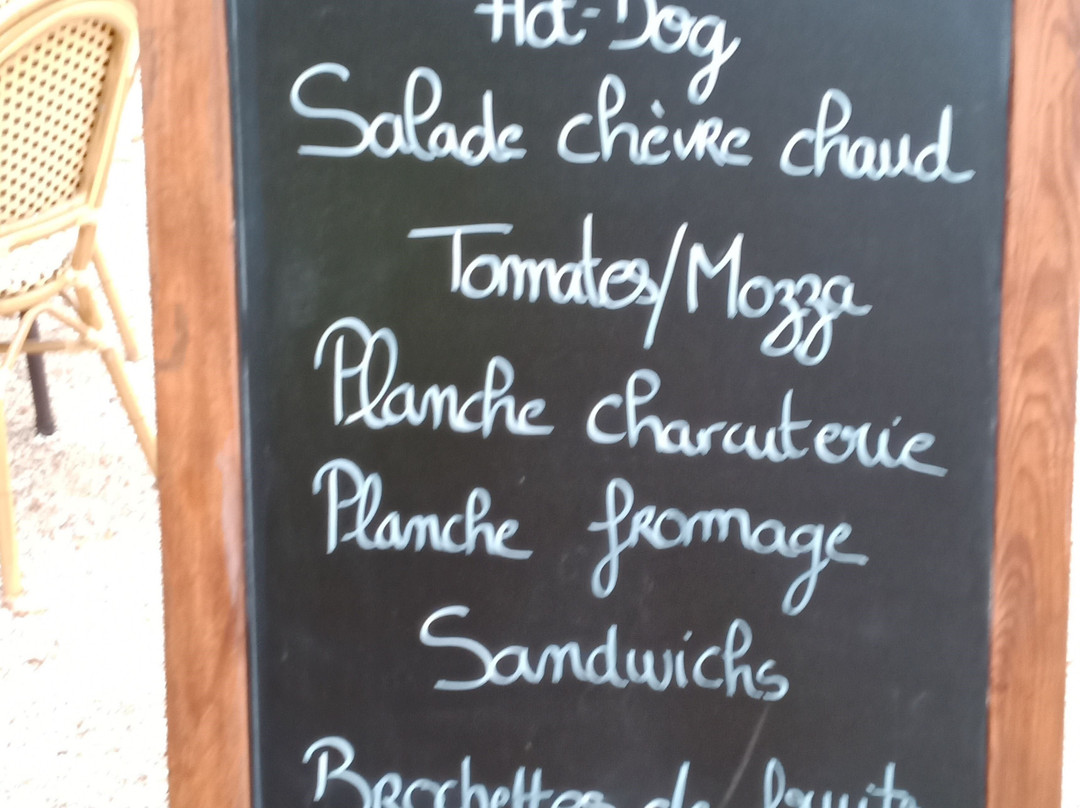 Hot-Dog
Salade chèvre chaud
Tomates/Mozza
Planche charcuterie
Planche fromage
Sandwichs
Brochettes de fruits